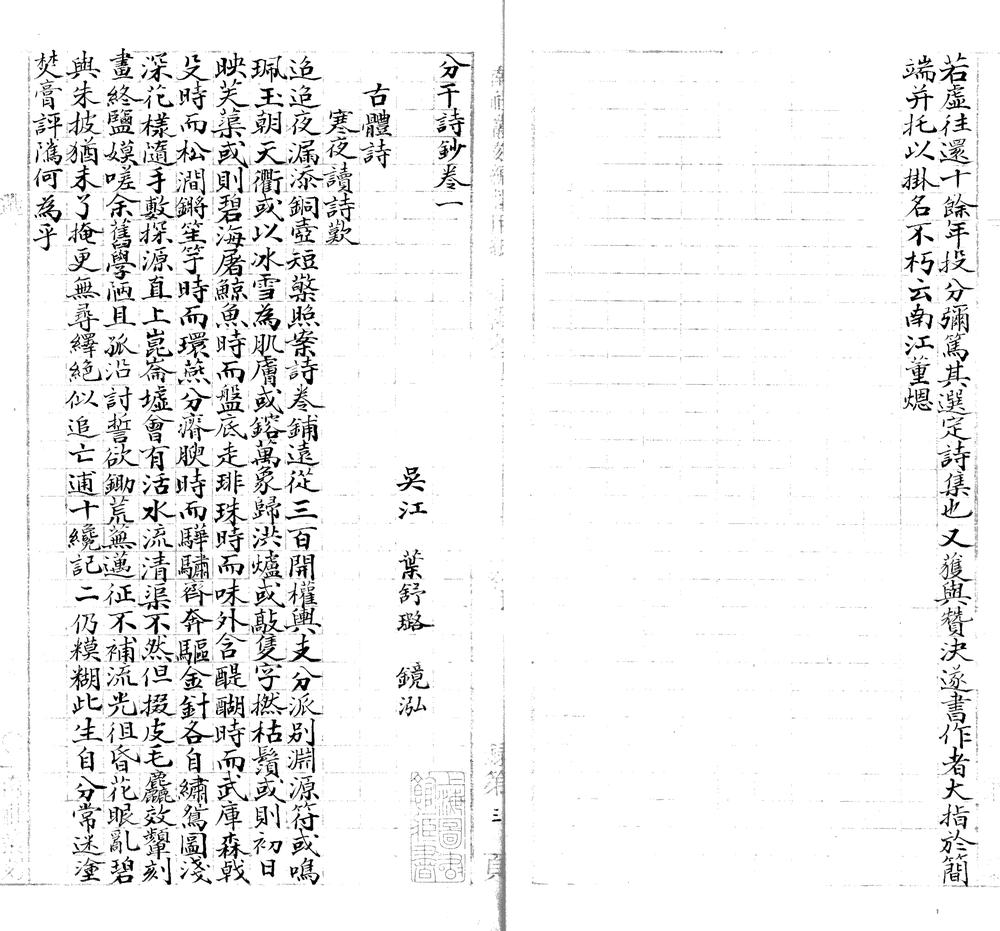 若虛往還十餘年投分彌篤其選定詩集也又獲與贊決遂書作者大指於簡
端并托以掛名不朽云南江董熜
分干詩鈔卷一
吳江 葉舒璐 鏡泓
古體詩
寒夜讀詩歎
迢迢夜漏添銅壺短檠照案詩卷鋪遠從三百開權輿支分派別淵源符或鳴
珮玉朝天衢或以冰雪為肌膚或鎔萬象歸洪爐或敲隻字撚枯鬚或則初日
映芙蕖或則碧海屠鯨魚時而盤底走琲珠時而味外含醍醐時而武庫森戟
殳時而松澗鏘笙竽時而環燕分瘠腴時而驊驌齊奔驅金針各自繡鴛圖淺
深花樣隨手敷探源直上崑崙墟會有活水流清渠不然但掇皮毛麤效顰刻
畫終鹽嫫嗟余舊學陋且孤沿討誓欲鋤荒蕪邁征不補流光徂昏花眼亂碧
與朱披猶未了掩更無尋繹絕似追亡逋十纔記二仍糢糊此生自分常迷塗
焚膏評隲何為乎
上海圖書館藏書